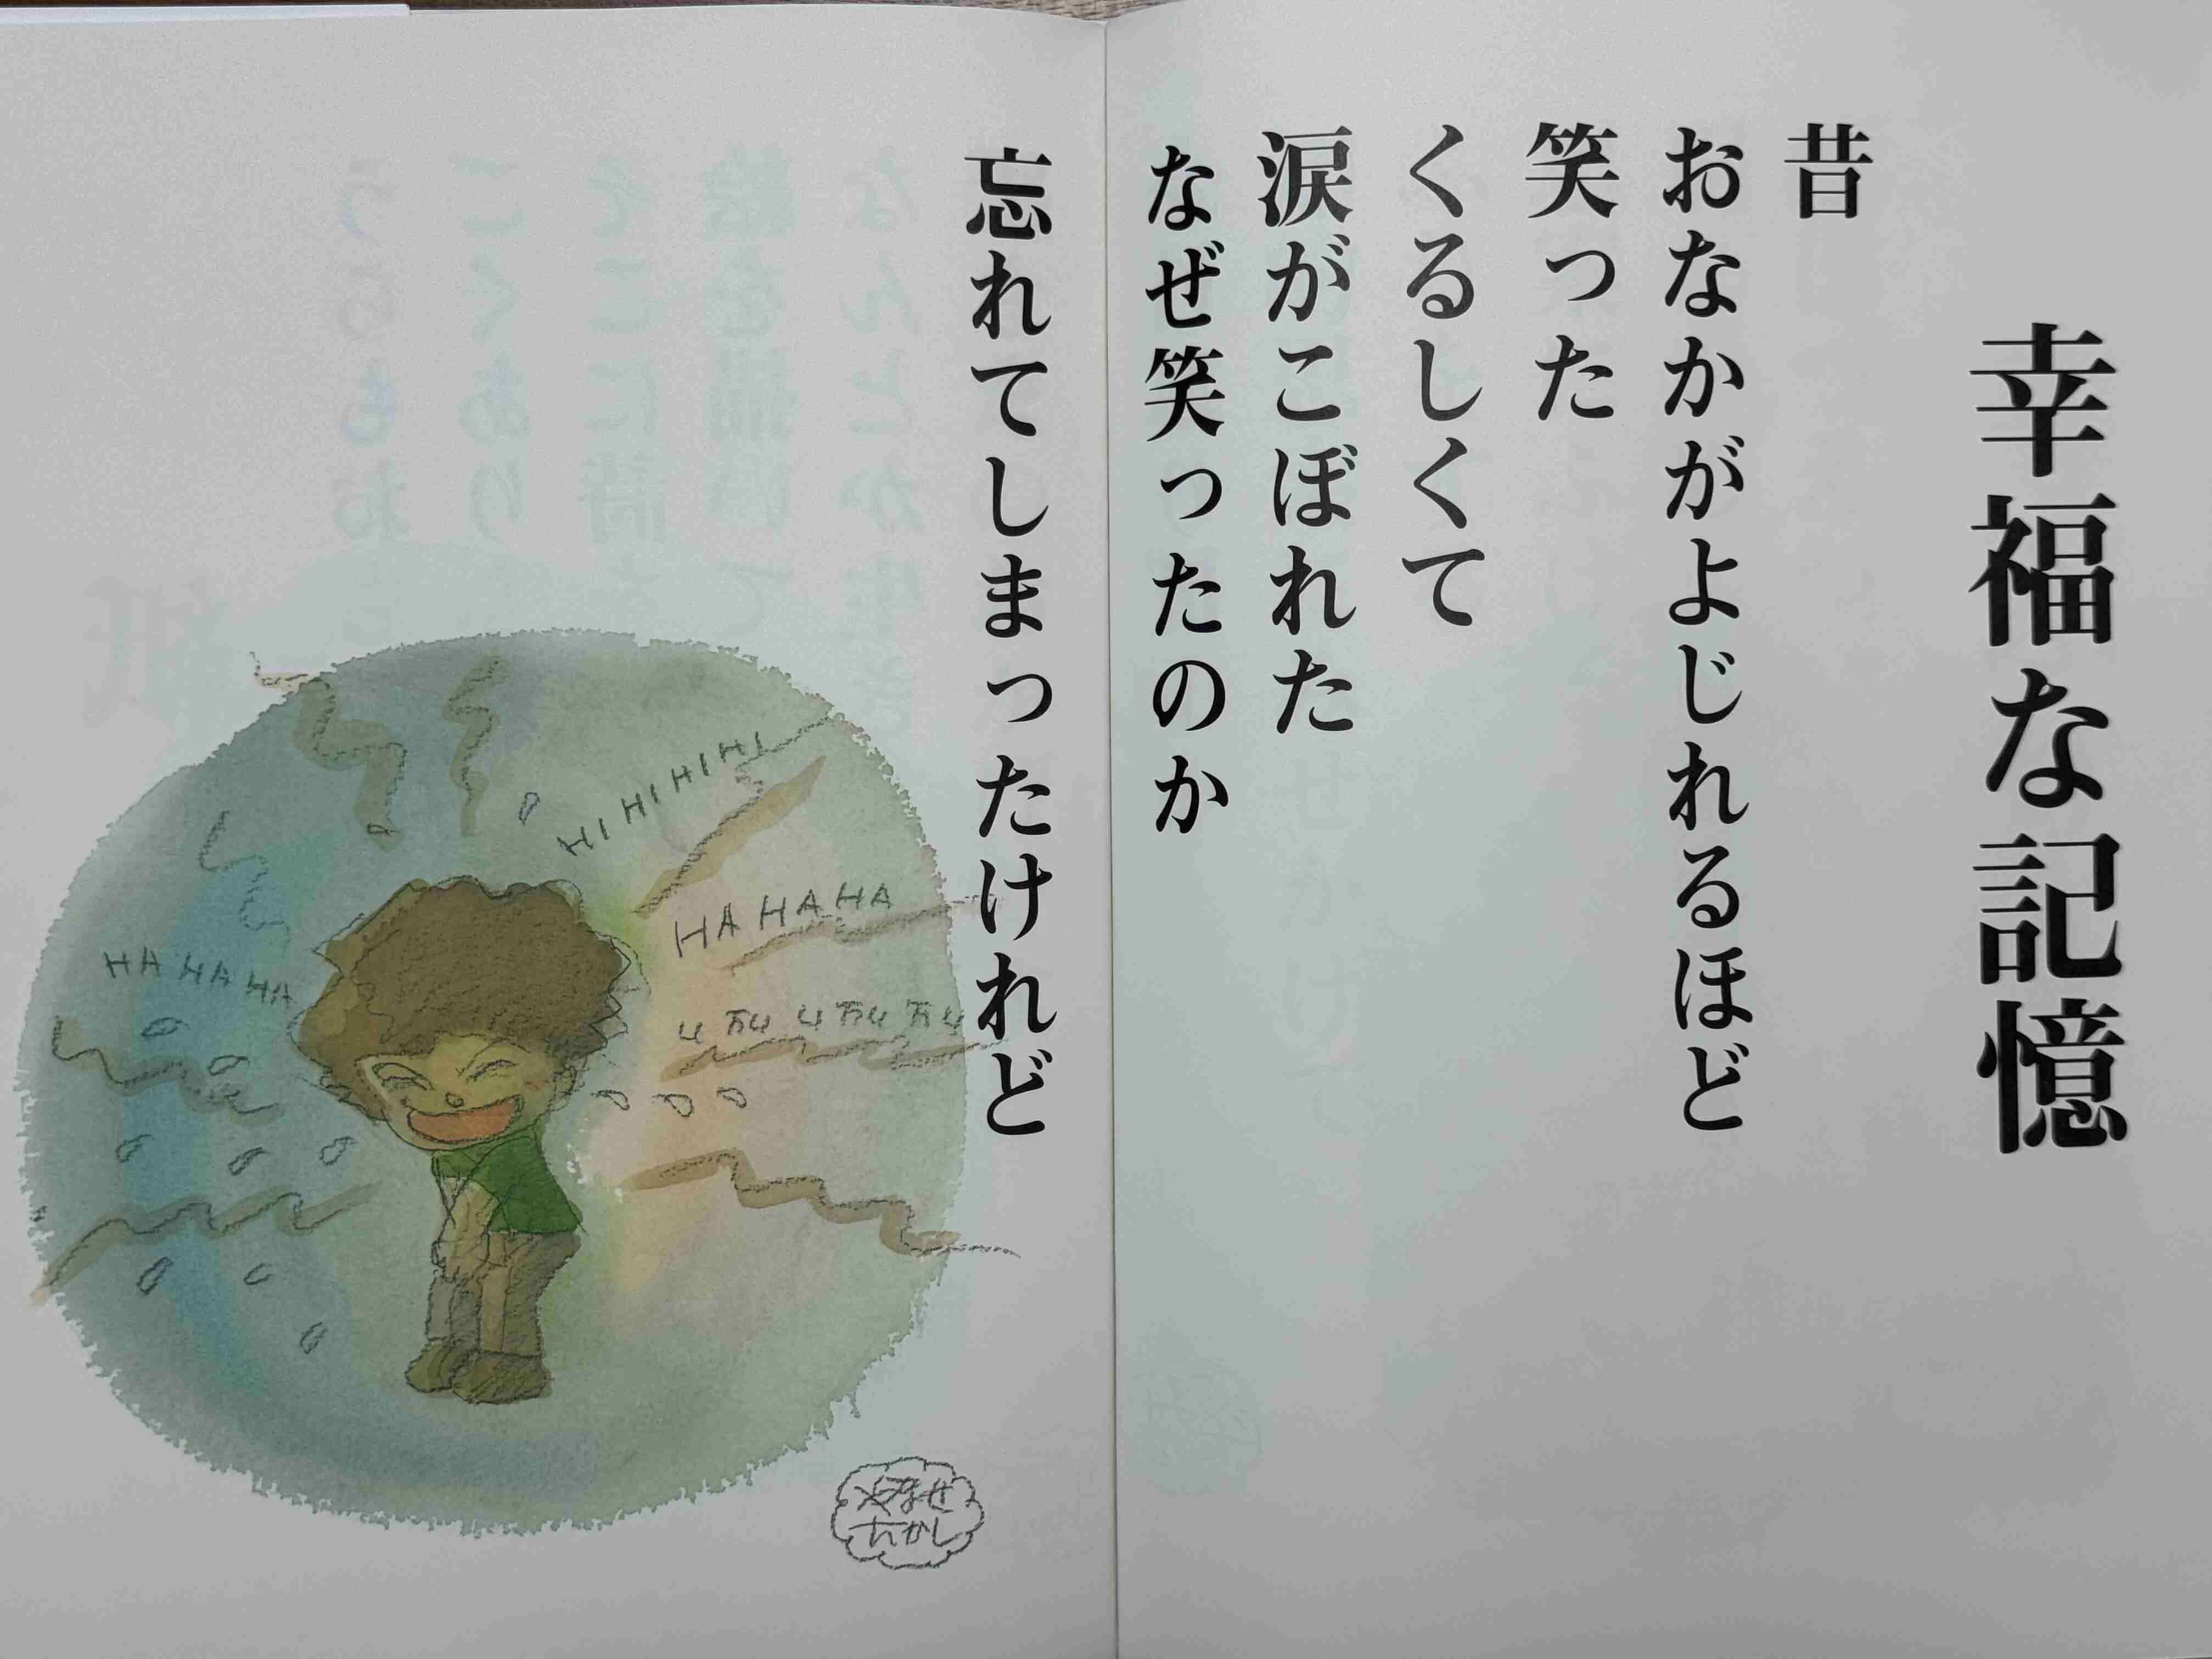 幸福な記憶
昔
おなかがよじれるほど
笑った
くるしくて
涙がこぼれた
なぜ笑ったのか
忘れてしまったけれど
HIHIHIHI
HAHAHA
HAHAHA
やなせ
たかし